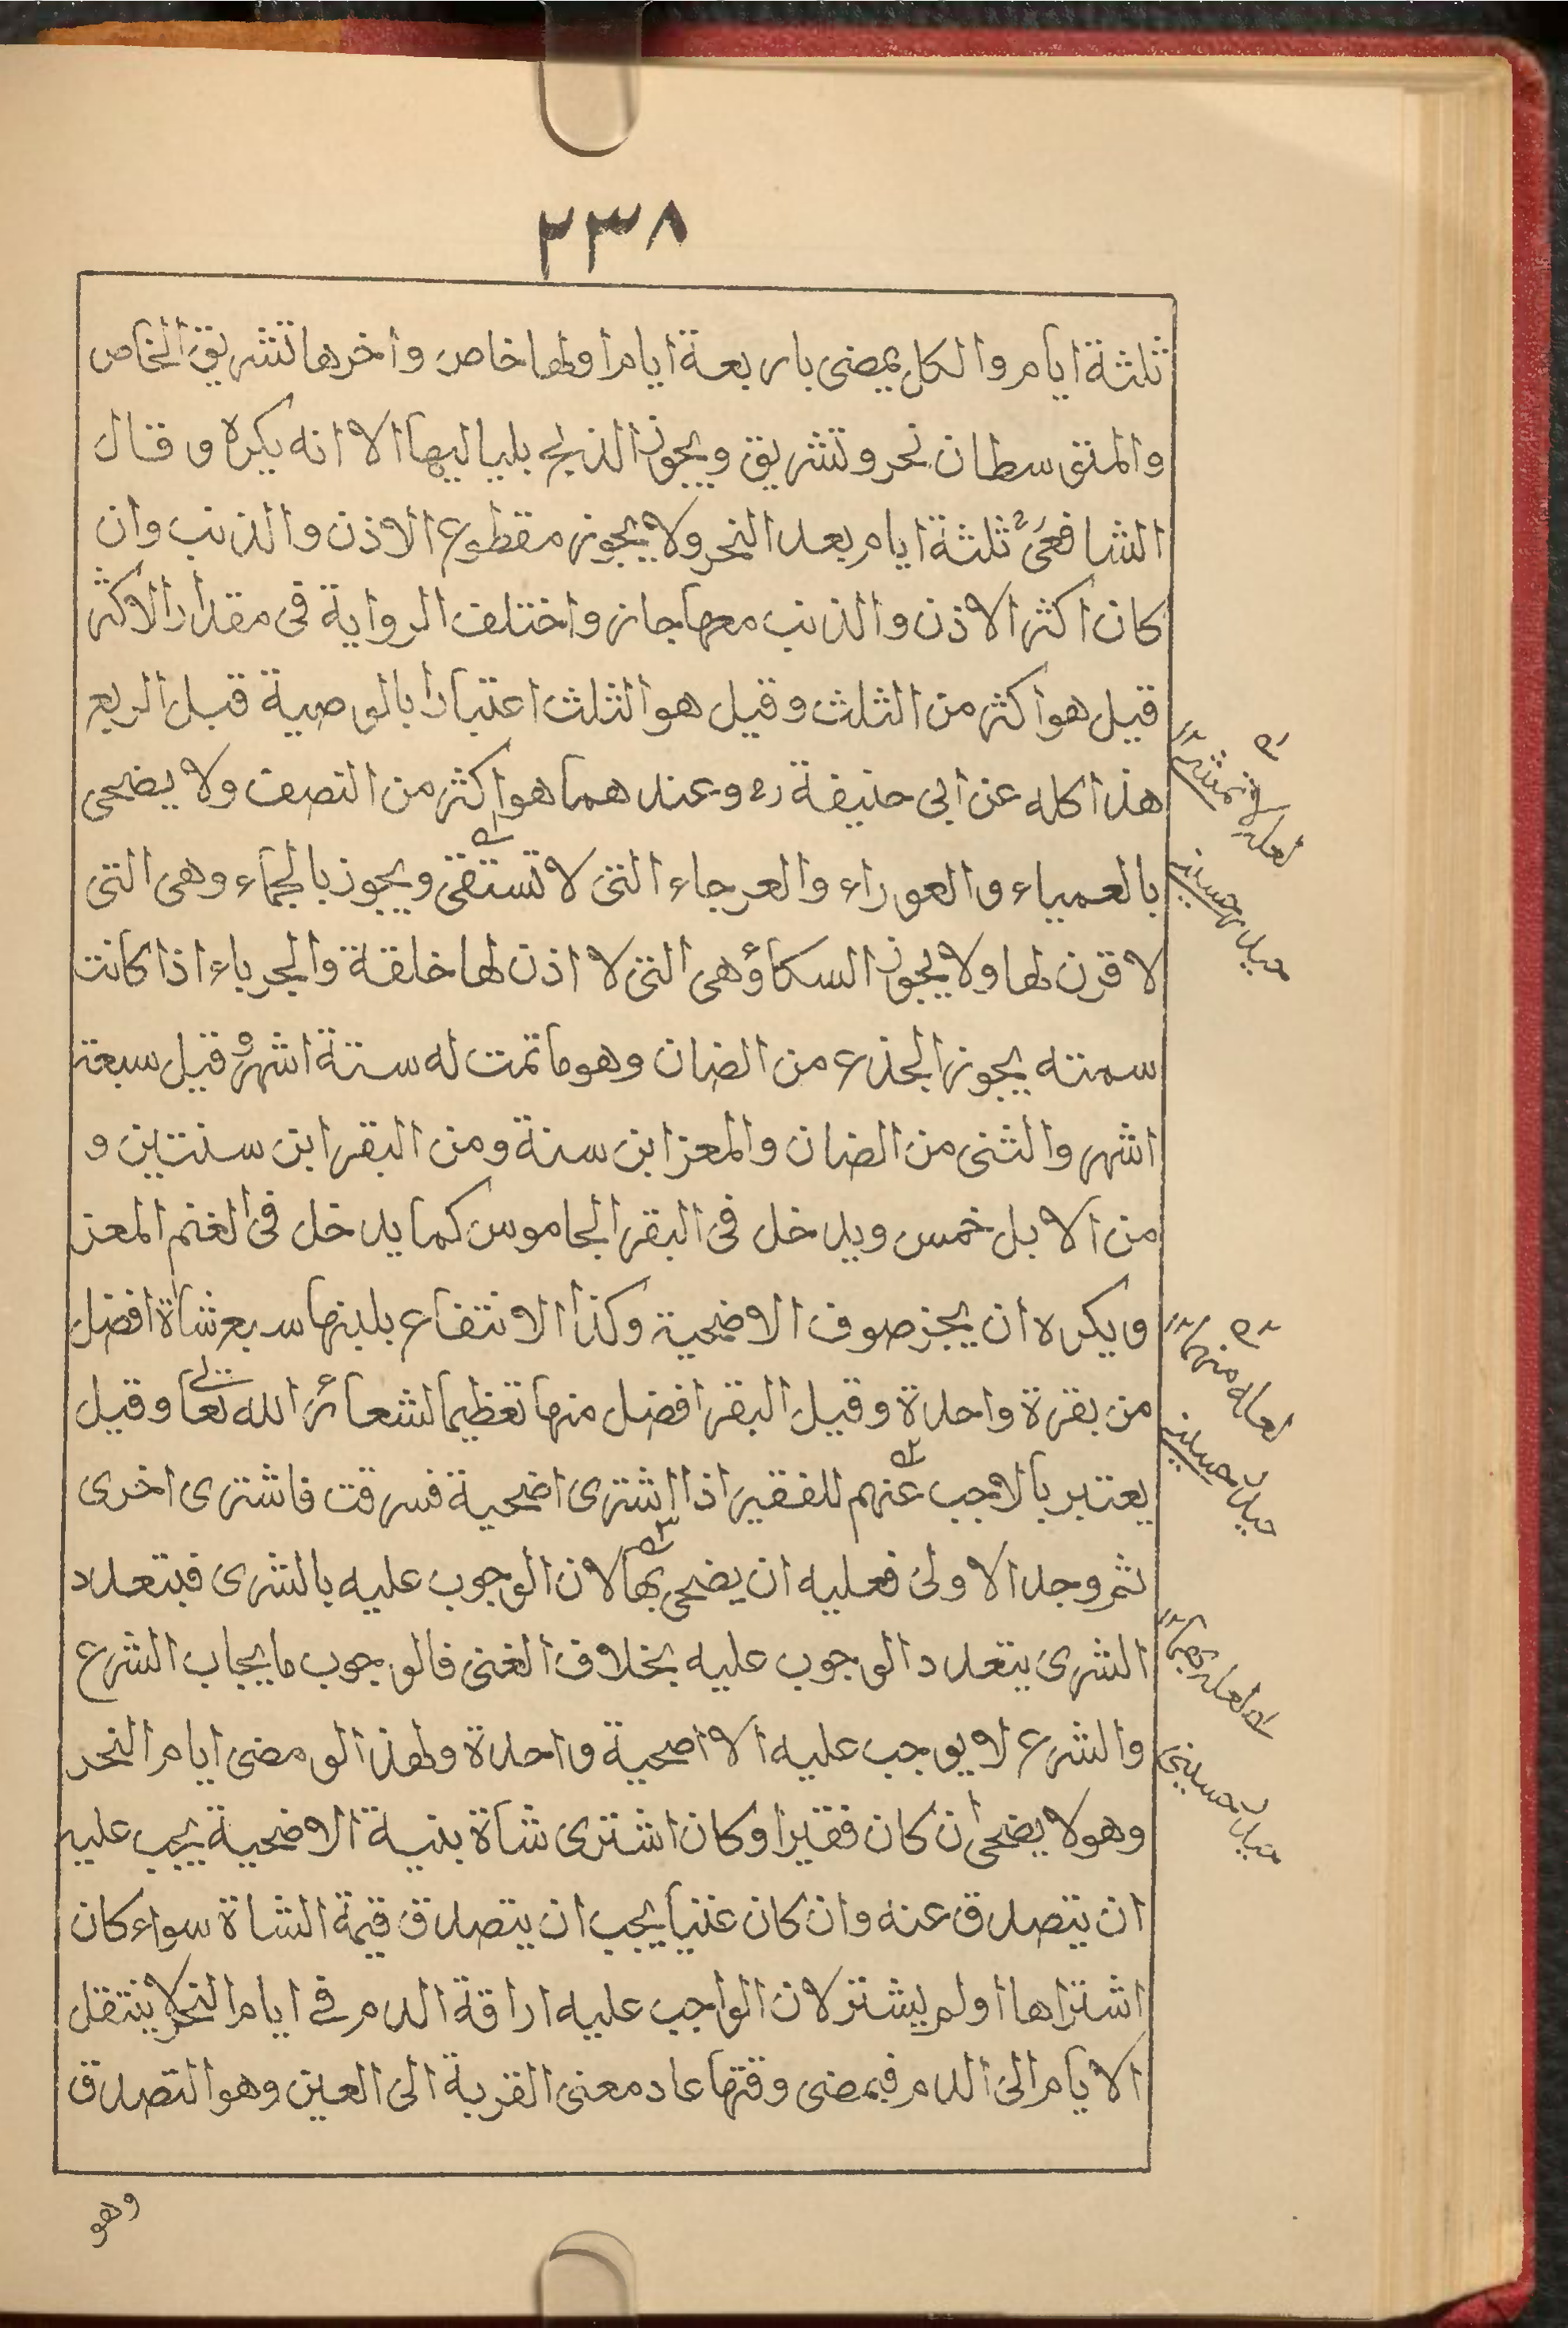 ٢٣٨
ثلثة ايام والكل يمضى باربعة ايام اولها خاص واخرها تشريق الخاص
والمتوسطان نحر وتشريق ويجوز الذبح بلياليها الا انه يكره وقال
الشافعىؒ ثلثة ايام بعد النحر ولا يجوز مقطوع الاذن والذنب وان
كان اكثر الاذن والذنب معها جاز واختلف الرواية فى مقدار الاكثر
قيل هو اكثر من الثلث وقيل هو الثلث اعتبارا بالوصية قبل الربع
هذا كله عن ابى حنيفة رح وعندهما هو اكثر من النصف ولا يضحى
بالعمياء والعوراء والعرجاء التى لا تستقى ويجوز بالجماء وهى التى
لا قرن لها ولا يجوز السكاؤ هى التى لا اذن لها خلقة والجرباء اذا كانت
سمتنه يجوز الجذع من الضان وهو ما تمت له ستة اشهر وقيل سبعة
اشهر والثنى من الضان والمعز ابن سنة ومن البقر ابن سنتين و
من الابل خمس ويدخل فى البقر الجاموس كما يدخل فى الغنم المعز
ويكره ان يجز صوف الاضحية وكذا الانتفاع بلبنها سبع شاة افضل
من بقرة واحدة وقيل البقر افضل منها تعظيما لشعائر الله تعالى وقيل
يعتبر بالاجب عنهم للفقير اذا اشترى اضحية فسرقت فاشترى اخرى
ثم وجد الاولى فعليه ان يضحى بها لان الوجوب عليه بالشرى فبتعدد
الشرى يتعدد الوجوب عليه بخلاف الغنى فالوجوب مايجاب الشرع
والشرع لا يوجب عليه الا اضحية واحدة ولهذا لو مضى ايام النحر
وهو لا يضحى ان كان فقيرا وكان اشترى شاة بنية الاضحية يجب عليه
ان يتصدق عنه وان كان غنيا يجب ان يتصدق قيمة الشاة سواء كان
اشتراها اولم يشتر لان الواجب عليه اراقة الدم فى ايام النحر لا ينتقل
الايام الى الدم فبمضى وقتها عاد معنى القربة الى العين وهو التصدق
وهو
لعله لا تمشى
لعله منها
لعله بهما